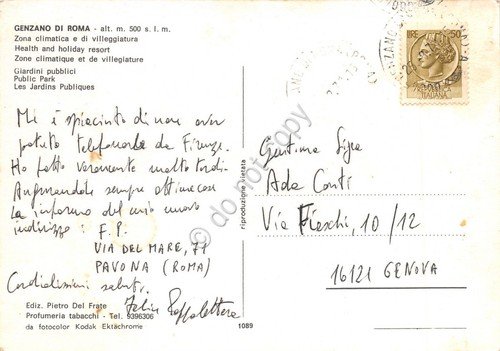 GENZANO DI ROMA - alt. m. 500 s. l. m.
Zona climatica e di villeggiatura
Health and holiday resort
Zone climatique et de villegiature
Giardini pubblici
Public Park
Les Jardins Publiques
Mi è spiaciuto di non aver
potuto telefonarLe da Firenze.
Ho fatto veramente molto tardi.
Augurandole sempre ottime cose
La informo del mio nuovo
indirizzo: F. P.
VIA DEL MARE, 71
PAVONA (ROMA)
Cordialissimi saluti,
Felice
Ediz. Pietro Del Frate
Profumeria tabacchi - Tel. 9396306
da fotocolor Kodak Ektachrome
1089
riproduzione vietata
do not copy
LIRE 50
ITALIANA
Gentma Sigra
Ada Conti
Via Fieschi, 10/12
16121 GENOVA